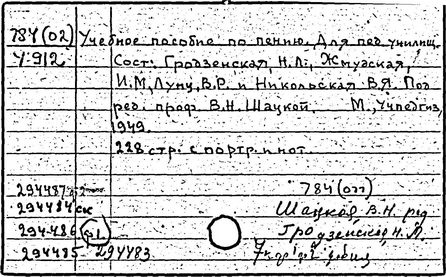 784(02) Учебное пособие по пению. Для пед. училищ.
У-912 Сост.: Гродзенская, Н.Л., Жмудская,
И.М, Лупу, В.Р. и Никольская В.Я. Под
ред. проф. В.Н. Шацкой. М., Учпедгиз,
1949.
228 стр. с портр. и нот.
294487
784(077)
294484 ск
Шацкая, В.Н. ред
294486
Гродзенская, Н.Л.
294485 294483